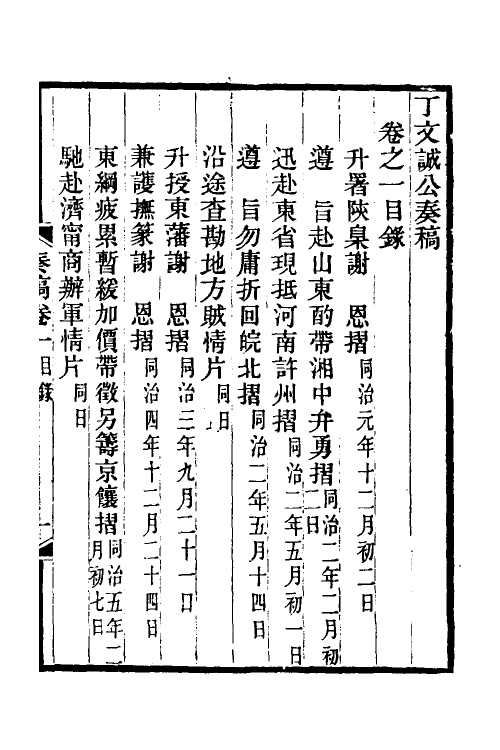 丁文誠公奏稿
卷之一目錄
升署陝臬謝　恩摺同治元年十二月初二日
遵　旨赴山東酌帶湘中弁勇摺同治二年二月初二日
迅赴東省現抵河南許州摺同治二年五月初一日
遵　旨勿庸折回皖北摺同治二年五月十四日
沿途查勘地方賊情片同日
升授東藩謝　恩摺同治三年九月二十一日
兼護撫篆謝　恩摺同治四年十二月二十四日
東綱疲累暫緩加價帶徵另籌京饟摺同治五年二月初七日
馳赴濟甯商辦軍情片同日
奏稿卷一目錄
一